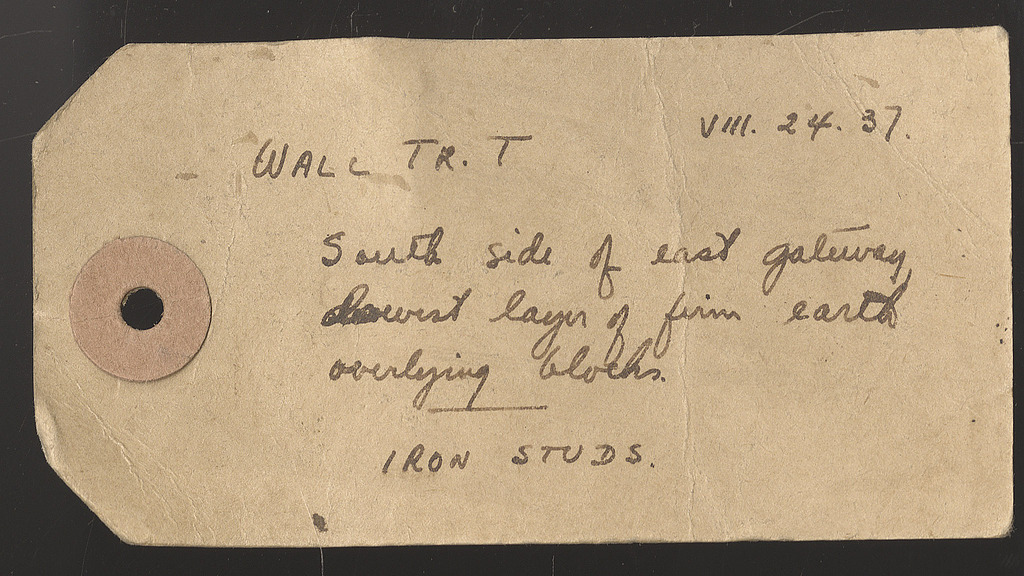 VIII. 24. 37.
WALL TR. T
South side of east gateway
lowest layer of firm earth
overlying blocks.
IRON STUDS.